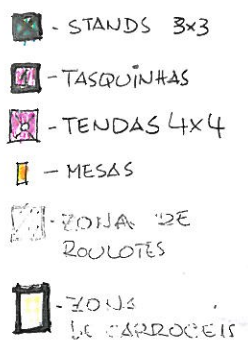 - STANDS 3x3
- TASQUINHAS
- TENDAS 4x4
- MESAS
- ZONA DE
ROULOTES
- ZONA
DE CARROCEIS